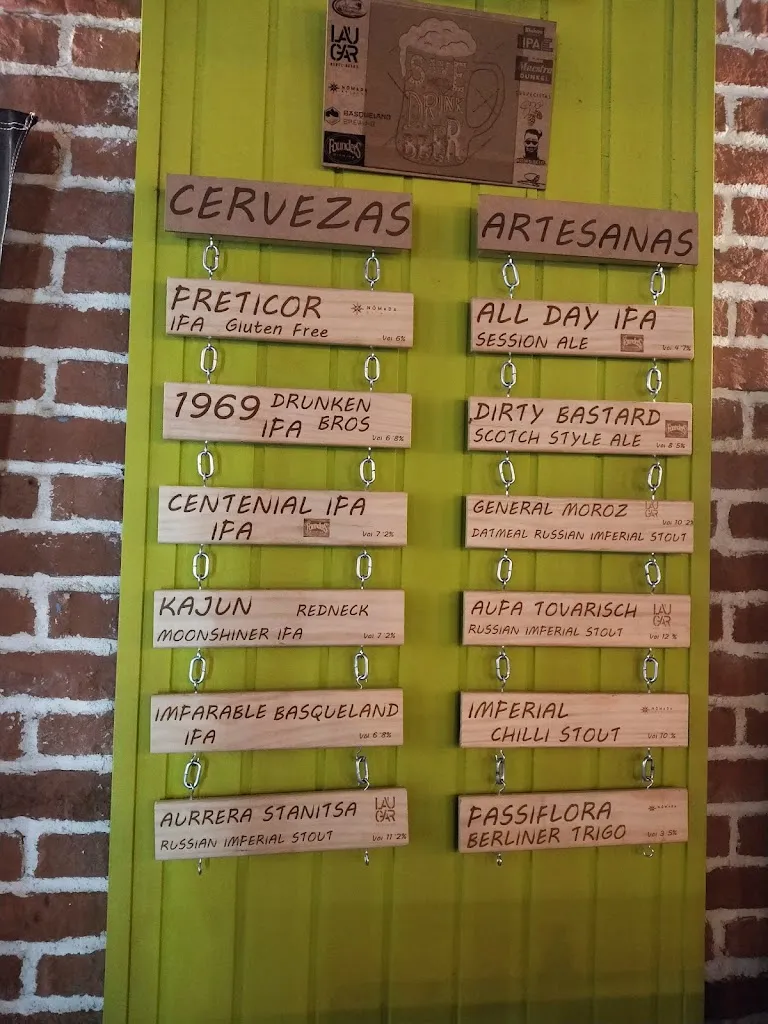 LAU
GAR
BASQUELAND
Founders
DRINK
IPA
Maestra
DUNKEL
CERVEZAS
PRETICOR
NÓMADA
IPA Gluten Free
Vol 6%
1969 DRUNKEN
IPA BROS
Vol 6'8%
CENTENIAL IPA
IPA
Founders
Vol 7'2%
KAJUN REDNECK
MOONSHINER IPA
Vol 7'2%
IMPARABLE BASQUELAND
IPA
Vol 6'8%
AURRERA STANITSA
LAU
GAR
RUSSIAN IMPERIAL STOUT
Vol 11'2%
ARTESANAS
ALL DAY IPA
SESSION ALE
Founders
Vol 4'7%
DIRTY BASTARD
Founders
SCOTCH STYLE ALE
Vol 8'5%
GENERAL MOROZ
LAU
GAR
Vol 10'2%
OATMEAL RUSSIAN IMPERIAL STOUT
AUPA TOVARISCH
LAU
GAR
RUSSIAN IMPERIAL STOUT
Vol 12 %
IMPERIAL
NÓMADA
CHILLI STOUT
Vol 10 %
PASSIFLORA
NÓMADA
BERLINER TRIGO
Vol 3'5%